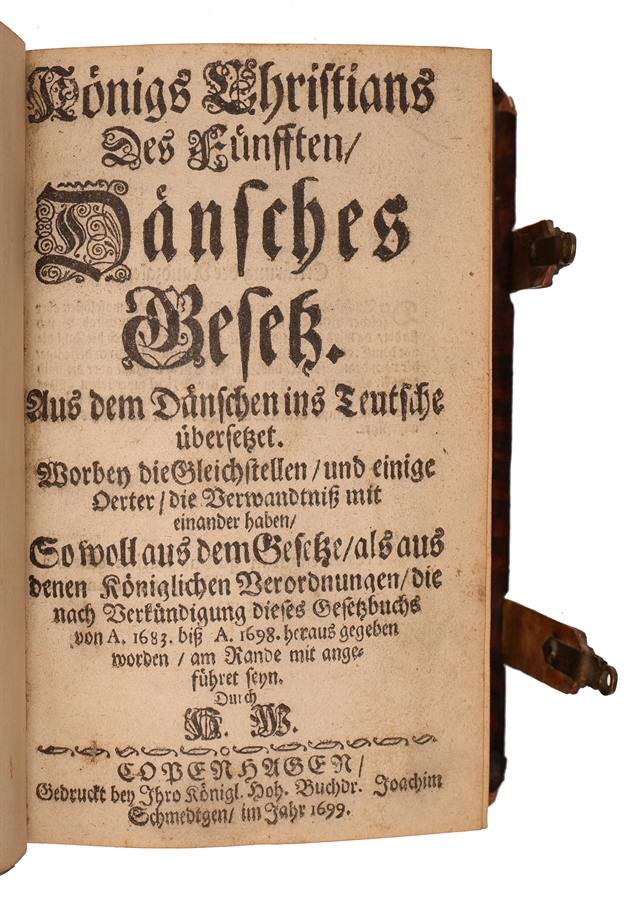 Königs Christians
Des Fünfften/
Dänsches
Gesetz.
Aus dem Dänschen ins Teutsche
übersetzet.
Worbey die Gleichstellen/und einige
Oerter/die Verwandtniß mit
einander haben/
So woll aus dem Gesetze/als aus
denen Königlichen Verordnungen/die
nach Verkündigung dieses Gesetzbuchs
von A. 1683. biß A. 1698. heraus gegeben
worden / am Rande mit ange-
führet seyn.
Durch
H. W.
COPENHAGEN/
Gedruckt bey Ihro Königl. Hoh. Buchdr. Joachim
Schmedtgen/ im Jahr 1699.